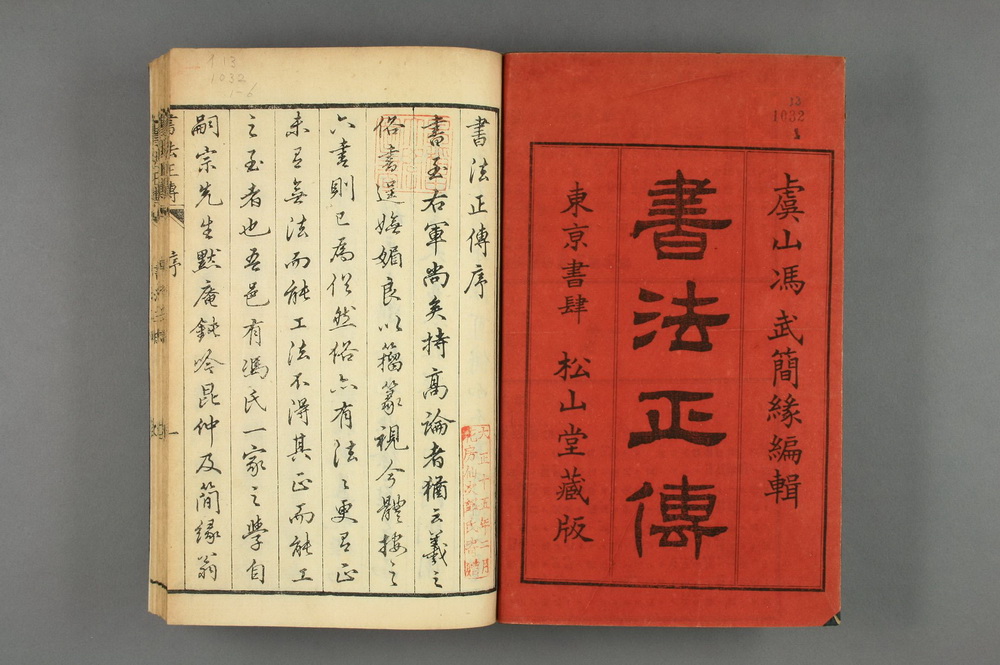 虞山馮武簡緣編輯
書法正傳
東京書肆 松山堂藏版
13
1032
書法正傳序
書至右軍尚矣持高論者猶云羲之
俗書逞嫵媚良以籀篆視今體接之
六書則已爲俗然俗亦有法〻更有正
未有無法而能工法不得其正而能工
之至者也吾邑有馮氏一家之學自
嗣宗先生默庵鈍吟昆仲及簡緣翁
大正十五年二月
書法正傳
序
一
13
1032
1-6